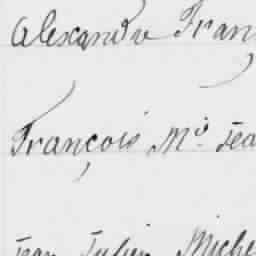 Alexandre Fran
François M.is Jea
Jean Julien Miche